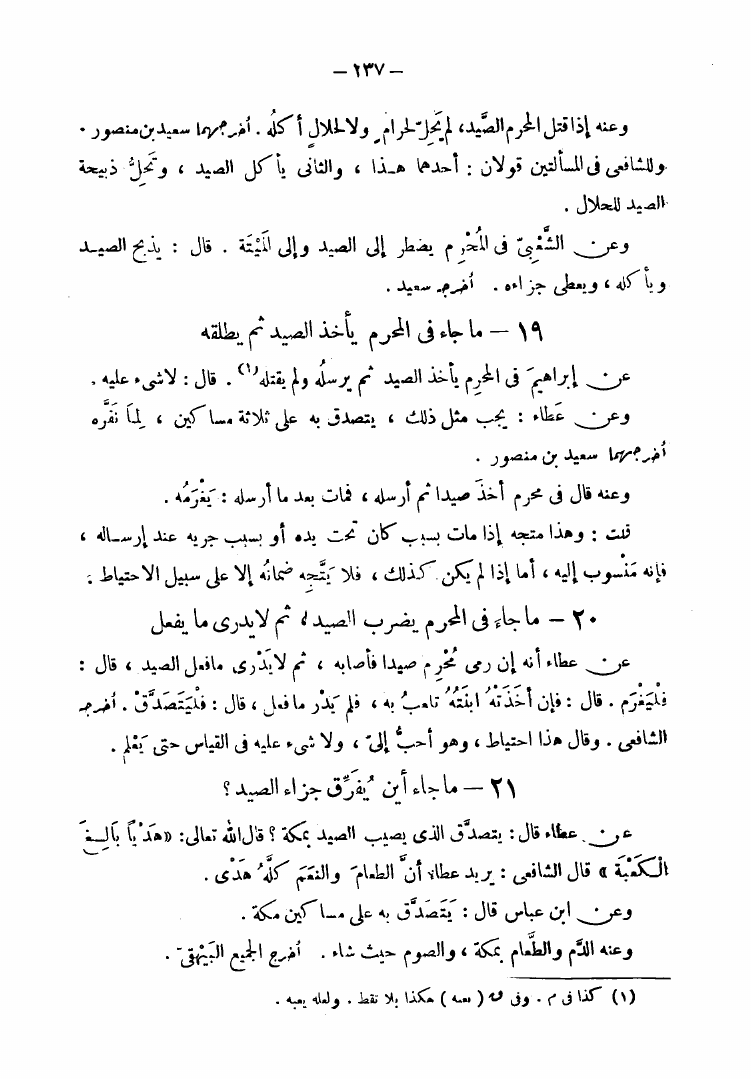 — ٢٣٧ —
وعنه إذا قتل المحرم الصَّيد، لم يَحِلّ لحرام ولا لحلال أكلُه . أخرجهما سعيد بن منصور .
وللشافعى فى المسألتين قولان : أحدهما هـذا ، والثانى يأكل الصيد ، وتَحِلُّ ذبيحة
الصيد للحلال .
وعن الشَّعْبِىّ فى المُحْرِم يضطر إلى الصيد وإلى المَيْتَة . قال : يذبح الصيـد
ويأكله ، ويعطى جزاءه . أخرجه سعيد .
١٩ — ما جاء فى المحرم يأخذ الصيد ثم يطلقه
عن إبراهيمَ فى المحرِم يأخذ الصيد ثم يرسلُه ولم يقتله(١) . قال : لاشىء عليه .
وعن عَطاء : يجب مثل ذلك ، يتصدق به على ثلاثة مساكين ، لِمَا نَفَّره
أخرجهما سعيد بن منصور .
وعنه قال فى محرم أخذَ صيدا ثم أرسله ، فمات بعد ما أرسله : يَغْرَمُه .
قلت : وهذا متجه إذا مات بسبب كان تحت يده أو بسبب جريه عند إرسـاله ،
فإنه مَنْسوب إليه ، أما إذا لم يكن كذلك ، فلا يَتَّجه ضمانُه إلا على سبيل الاحتياط .
٢٠ — ما جاءَ فى المحرم يضرب الصيد ، ثم لايدرى ما يفعل
عن عطاء أنه إن رمى مُحْرِم صيدا فأصابه ، ثم لايَدْرى مافعل الصيد ، قال :
فلْيَغْرَم . قال : فإن أخَذَتْهُ ابنَتُهُ تلعبُ به ، فلم يَدْر مافعل ، قال : فلْيَتَصَدَّقْ . أخرجه
الشافعى . وقال هذا احتياط ، وهو أحبُّ إلىّ ، ولا شىء عليه فى القياس حتى يَعْلم .
٢١ — ما جاء أين يُفَرِّق جزاء الصيد ؟
عن عطاء قال : يتصدَّق الذى يصيب الصيد بمكة ؟ قال الله تعالى : «هَدْيًا بَالِـغَ
الْـكَعْبَة » قال الشافعى : يريد عطاء أنَّ الطعامَ والنعَمَ كلَّهُ هَدْى .
وعن ابن عباس قال : يَتَصَدَّق به على مساكين مكة .
وعنه الدَّم والطَّعام بمكة ، والصوم حيث شاء . أخرج الجميع البَيْهقىّ .
(١) كذا فى م . وفى ق ( ىعىه ) هكذا بلا نقط . ولعله يعبه .